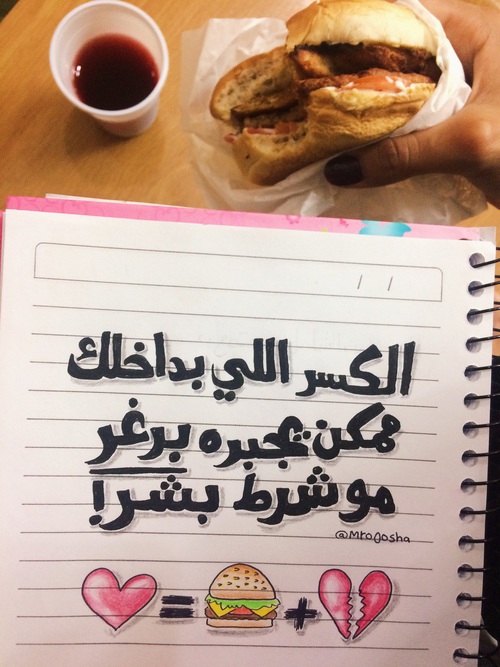 الكسر اللي بداخلك
ممكن يجبره برغر
مو شرط بشر!
@Mrogosha
/ /
= +